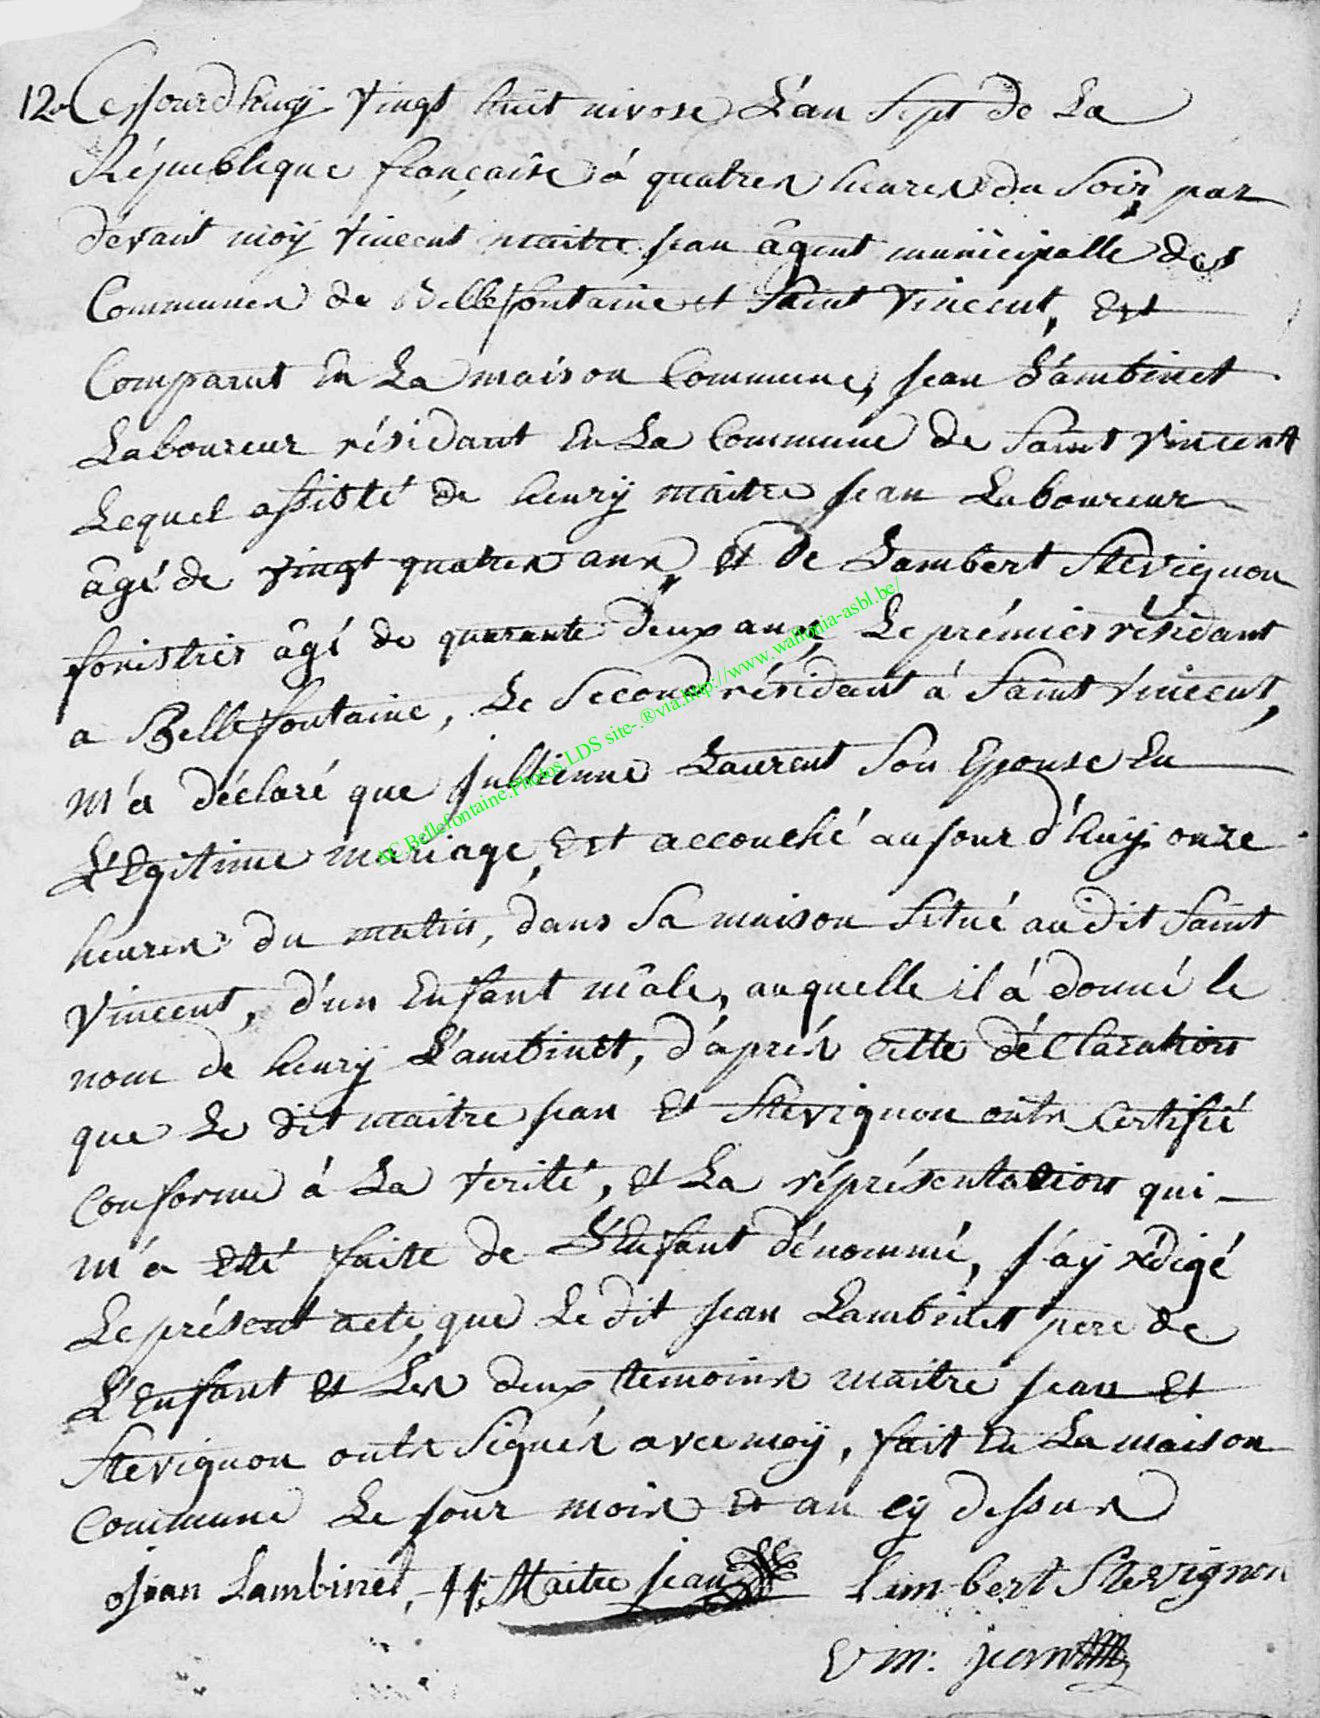 12e Cejourdhuy vingt huit nivose L'an Sept de La
République françaîse á quatres heures du Soir, par
devant moÿ vincent maitre jean âgent municipalle des
Communes de Bellefontaine et Saint Vincent, Est
Comparut En La maison Commune, jean L'ambinet
Laboureur résidant En La Commune de Saint Vincent
Lequel assisté de henrÿ maitre jean Laboureur
âgé de vingt quatres ans, et de Lambert Stevignon
foristries âgé de quarante deux ans, Le prémier résidant
a Bellefontaine, Le Second résidant á Saint Vincent,
m'a déclaré que jullienne Laurent Son Epouse En
L'Egitime mariage, Est accouché aujourd'huÿ onze
heures du matin, dans Sa maison Situé audit Saint
Vincent, d'un Enfant mâle, auquelle il á donné le
nom de henrÿ L'ambinet, d'áprés Cette déClaration
que Le dit maitre jean Et Stevignon onts Certifié
Conforme á La verité, et La réprésentation qui
m'a Eté faite de L'Enfant dénommé, j'aÿ rédigé
Le présent acte, que Le dit jean Lambinet pere de
L'Enfant Et Les deux temoins maitre jean Et
Stevignon onts Signés avec moÿ, fait En La maison
Commune Le jour mois et an cÿ dessus
jean Lambinet, H. Maitre jean Lambert Stevignon
V m: jean
AC.Bellefontaine.Photos.LDS site-.®via.http://www.wallonia-asbl.be/